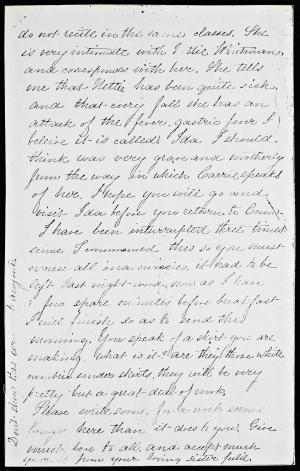 do not recite in the same classes. She
is very intimate with Idie Whitman,
and corresponds with her. She tells
me that Nettie has been quite sick,
and that every fall she has an
attack of the fever, gastric fever I
believe it is called. Ida I should
think was very grave and motherly
from the way in which Carrie speaks
of her. I hope you will go and
visit Ida before you return to Conn.
I have been interrupted three times
since I commenced this so you must
excuse all inaccuracies, it had to be
left last night and now as I have
a few spare minutes before breakfast
I will finish so as to send this
morning. You speak of a skirt you are
making, what is it? are they those white
cambric under skirts, they will be very
pretty but a great deal of work.
Please write soon, for a week seems
longer here than it does to you. Give
much love to all, and accept much
from your loving sister Julie
Don't show this ever to anyone